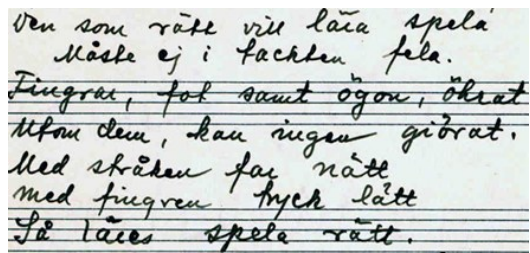 Den som rätt vill lära spela
Måste ej i tackten fela.
Fingrar, fot samt ögon, öhrat
Utom dem, kan ingen giörat.
Med stråken far nätt
med fingren tryck lätt
Så läres spela rätt.